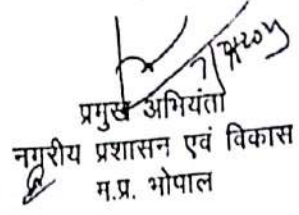 प्रमुख अभियंता
नगरीय प्रशासन एवं विकास
म.प्र. भोपाल